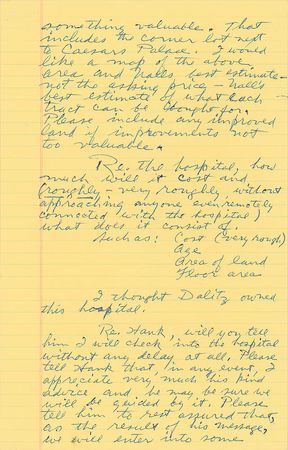 something valuable. That
includes the corner lot next
to Caesars Palace. I would
like a map of the above
area and Nalls best estimate -
not the asking price - Nalls
best estimate of what each
tract can be bought for.
Please include any improved
land if improvements not
too valuable.
Re. the hospital, how
much will it cost and
(roughly - very roughly, without
approaching anyone even remotely
connected with the hospital)
what does it consist of.
Such as: Cost (very rough)
Age
Area of land
Floor area
I thought Dalitz owned
this hospital.
Re. Hank, will you tell
him I will check into the hospital
without any delay at all. Please
tell Hank that, in any event, I
appreciate very much his kind
advice and he may be sure we
will be guided by it. Please
tell him to rest assured that,
as the result of his message,
we will enter into some